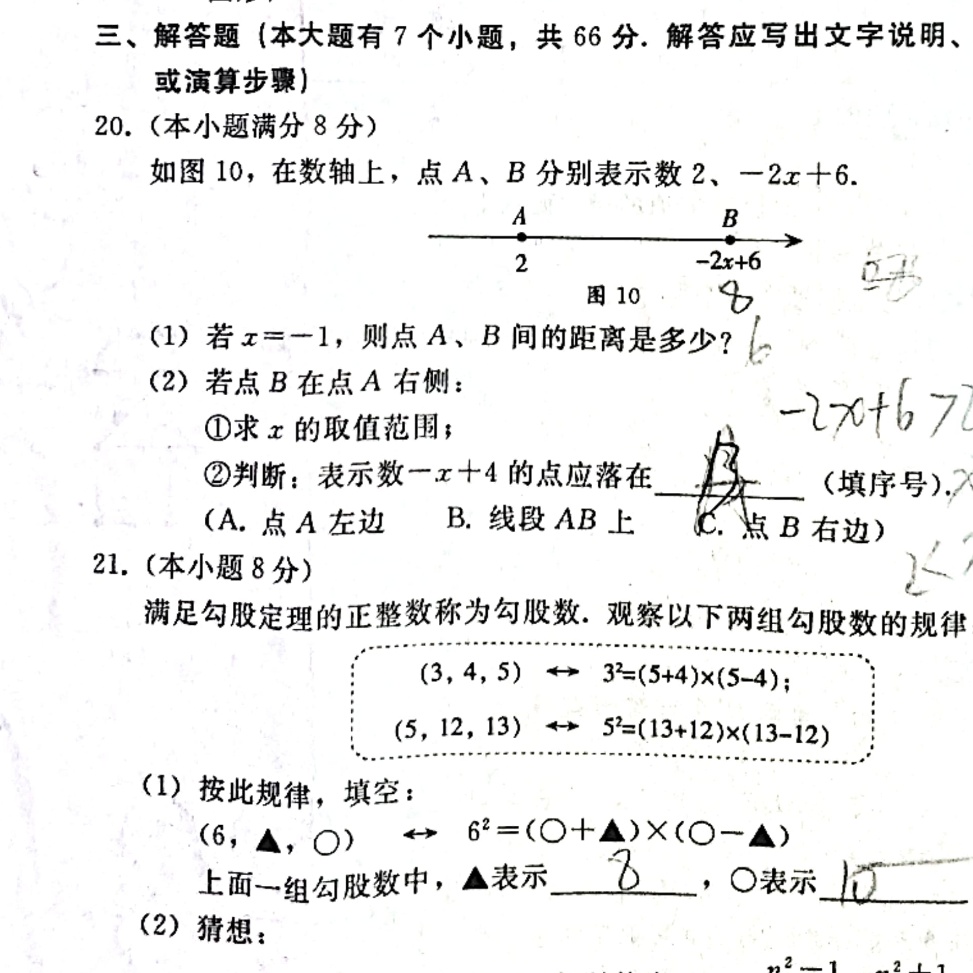 三、解答题（本大题有 7 个小题，共 66 分．解答应写出文字说明、
或演算步骤）
20.（本小题满分 8 分）
如图 10，在数轴上，点 A、B 分别表示数 2、－2x＋6．
A B
2 -2x+6
图 10
8
（1）若 x＝－1，则点 A、B 间的距离是多少？ 6
（2）若点 B 在点 A 右侧：
-2x+6>2
①求 x 的取值范围；
②判断：表示数－x＋4 的点应落在 B （填序号）．
（A. 点 A 左边 B. 线段 AB 上 C. 点 B 右边）
21.（本小题 8 分）
满足勾股定理的正整数称为勾股数．观察以下两组勾股数的规律
(3, 4, 5) ↔ 3²=(5+4)×(5-4)；
(5, 12, 13) ↔ 5²=(13+12)×(13-12)
（1）按此规律，填空：
(6, ▲, ○) ↔ 6²＝(○＋▲)×(○－▲)
上面一组勾股数中，▲表示 8 ，○表示 10
（2）猜想：